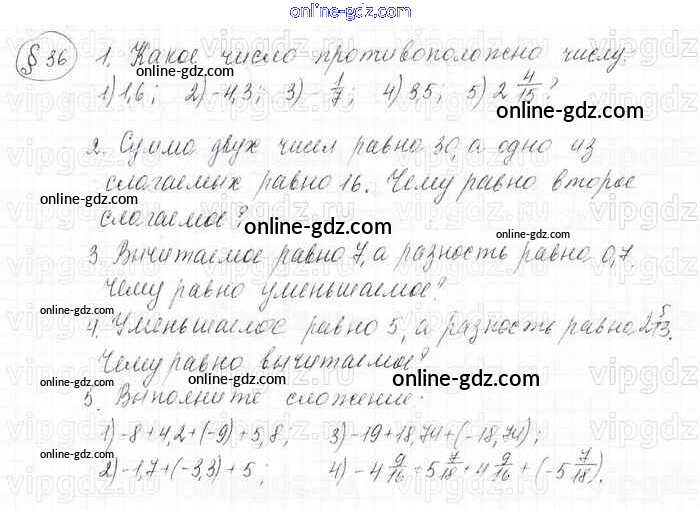 online-gdz.com
§ 36 1. Какое число противоположно числу:
online-gdz.com online-gdz.com
1) 1,6; 2) -4,3; 3) -1/7; 4) 3,5; 5) 2 4/15?
online-gdz.com
2. Сумма двух чисел равна 30, а одно из
online-gdz.com
слагаемых равно 16. Чему равно второе
online-gdz.com
слагаемое?
online-gdz.com
3. Вычитаемое равно 7, а разность равна 0,7.
online-gdz.com
Чему равно уменьшаемое?
online-gdz.com
4. Уменьшаемое равно 5, а разность равна 2 5/13.
online-gdz.com
Чему равно вычитаемое?
online-gdz.com online-gdz.com
5. Выполните сложение:
online-gdz.com
1) -8+4,2+(-9)+5,8; 3) -19+18,74+(-18,74);
online-gdz.com
2) -1,7+(-3,3)+5; 4) -4 9/16+5 7/18+4 9/16+(-5 7/18).
online-gdz.com